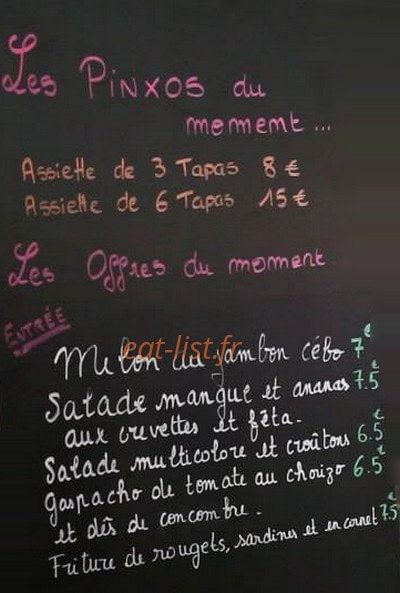 Les Pinxos du
moment...
Assiette de 3 Tapas 8 €
Assiette de 6 Tapas 15 €
Les Offres du moment
ENTRÉE
eat-list.fr
Melon au jambon cébo 7€
Salade mangue et ananas 7.5€
aux crevettes et fêta.
Salade multicolore et croûtons 6.5€
gaspacho de tomate au chorizo 6.5€
et dés de concombre.
Friture de rougets, sardines et en cornet 7.5€